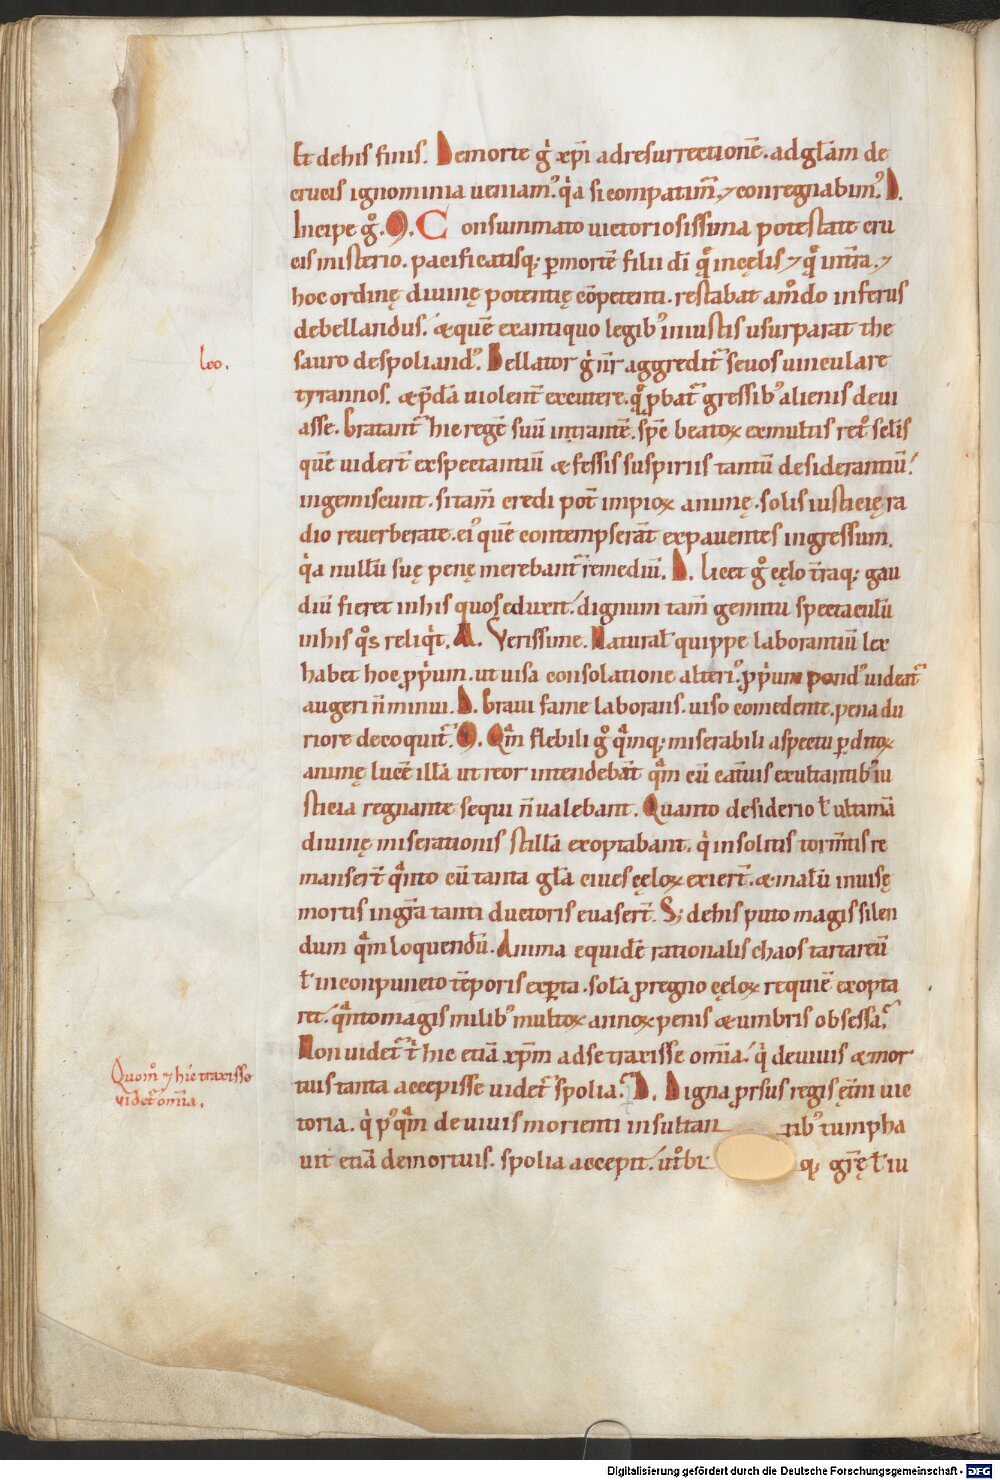 Et de his finis. Demorte g̊ xp̄i ad resurrectionē. ad gl̄am de
crucis ignominia ueniamꝰ. q̇a si compatim̄ ⁊ conregnabimꝰ. D.
Incipe g̊. M. Consummato uictoriosissima potestate cru
cis misterio. pacificatisq; ꝑ mortē filii dī q̊ in cęlis ⁊ q̊ in t̄ra. ⁊
hoc ordinę diuinę potentię cōpetenti. restabat am̊do inferus
debellandus. & quē ex antiquo legibꝰ iniustis usurparat the
leo.
sauro despoliandꝰ. Bellator g̊ nr̄ aggredit᷑ seuos uinculare
tyrannos. & p̄dā uiolent̄ excutere. q̊ ꝓbat᷑ gressibꝰ alienis deui
asse. Gratant᷑ hic regē suū intrantē. spē beatoꝝ ex multis ret̊ sęlis
quē uidert̄ exspectantiū & fessis suspiriis tantū desiderantiū!
ingemiscunt. si tam̄ credi pot̄ impioꝝ animę. solis iusticię ra
dio reuerberate. eiꝰ quē contempserāt expauentes ingressum.
q̇a nullū suę penę merebant᷑ remediū. D. Licet g̊ cęlo t̄raq; gau
diū fieret in his quos eduxit. dignum tam̄ gemitu spectaculū
in his q̊s reliq̇t. M. Verissime. Natural̄ quippe laborantiū lex
habet hoc ꝓṗum. ut uisa consolatione alteriꝰ. ꝓṗum pondꝰ uideat᷑
augeri n̄ minui. D. Graui fame laborans. uiso comedente. pena du
riore decoquit᷑. M. Qm̄ flebili g̊ qᷓmq; miserabili aspectu ꝑditoꝝ
animę lucē illā ut reor intendebāt qᷓm eū catuis exultantibꝰ iu
sticia regnante sequi n̄ ualebant. Quanto desiderio ł ultimā
diuinę miserationis stillā exoptabant. q̇ in solitis torm̄tis re
mansert̄ qᷓnto cū tanta gl̄a ciues cęloꝝ exiert̄. & malū inuisę
mortis in gr̄a tanti ductoris euasert̄. S; de his puto magis silen
dum qᷓm loquendū. Anima equidē rationalis chaos tartareū
ł in con puncto tēporis exꝑta. solā ꝓ regno cęloꝝ requiē exopta
ret. qᷓnto magis milibꝰ multoꝝ annoꝝ penis & umbris obsessa.
Quom̊ ⁊ hic traxisse
uidet᷑ om̄ia.
Non uidet᷑ t̄ hic etiā xp̄m ad se traxisse om̄ia. q̇ de uiuis & mor
tuis tanta accepisse uidet᷑ spolia. D. Digna ꝓrsus regis ęt̄ni uic
toria. q̇ pꝰqᷓm de uiuis morienti insultan tibꝰ tumpha
uit etiā de mortuis. spolia accepit. q; gr̄ę ł iu